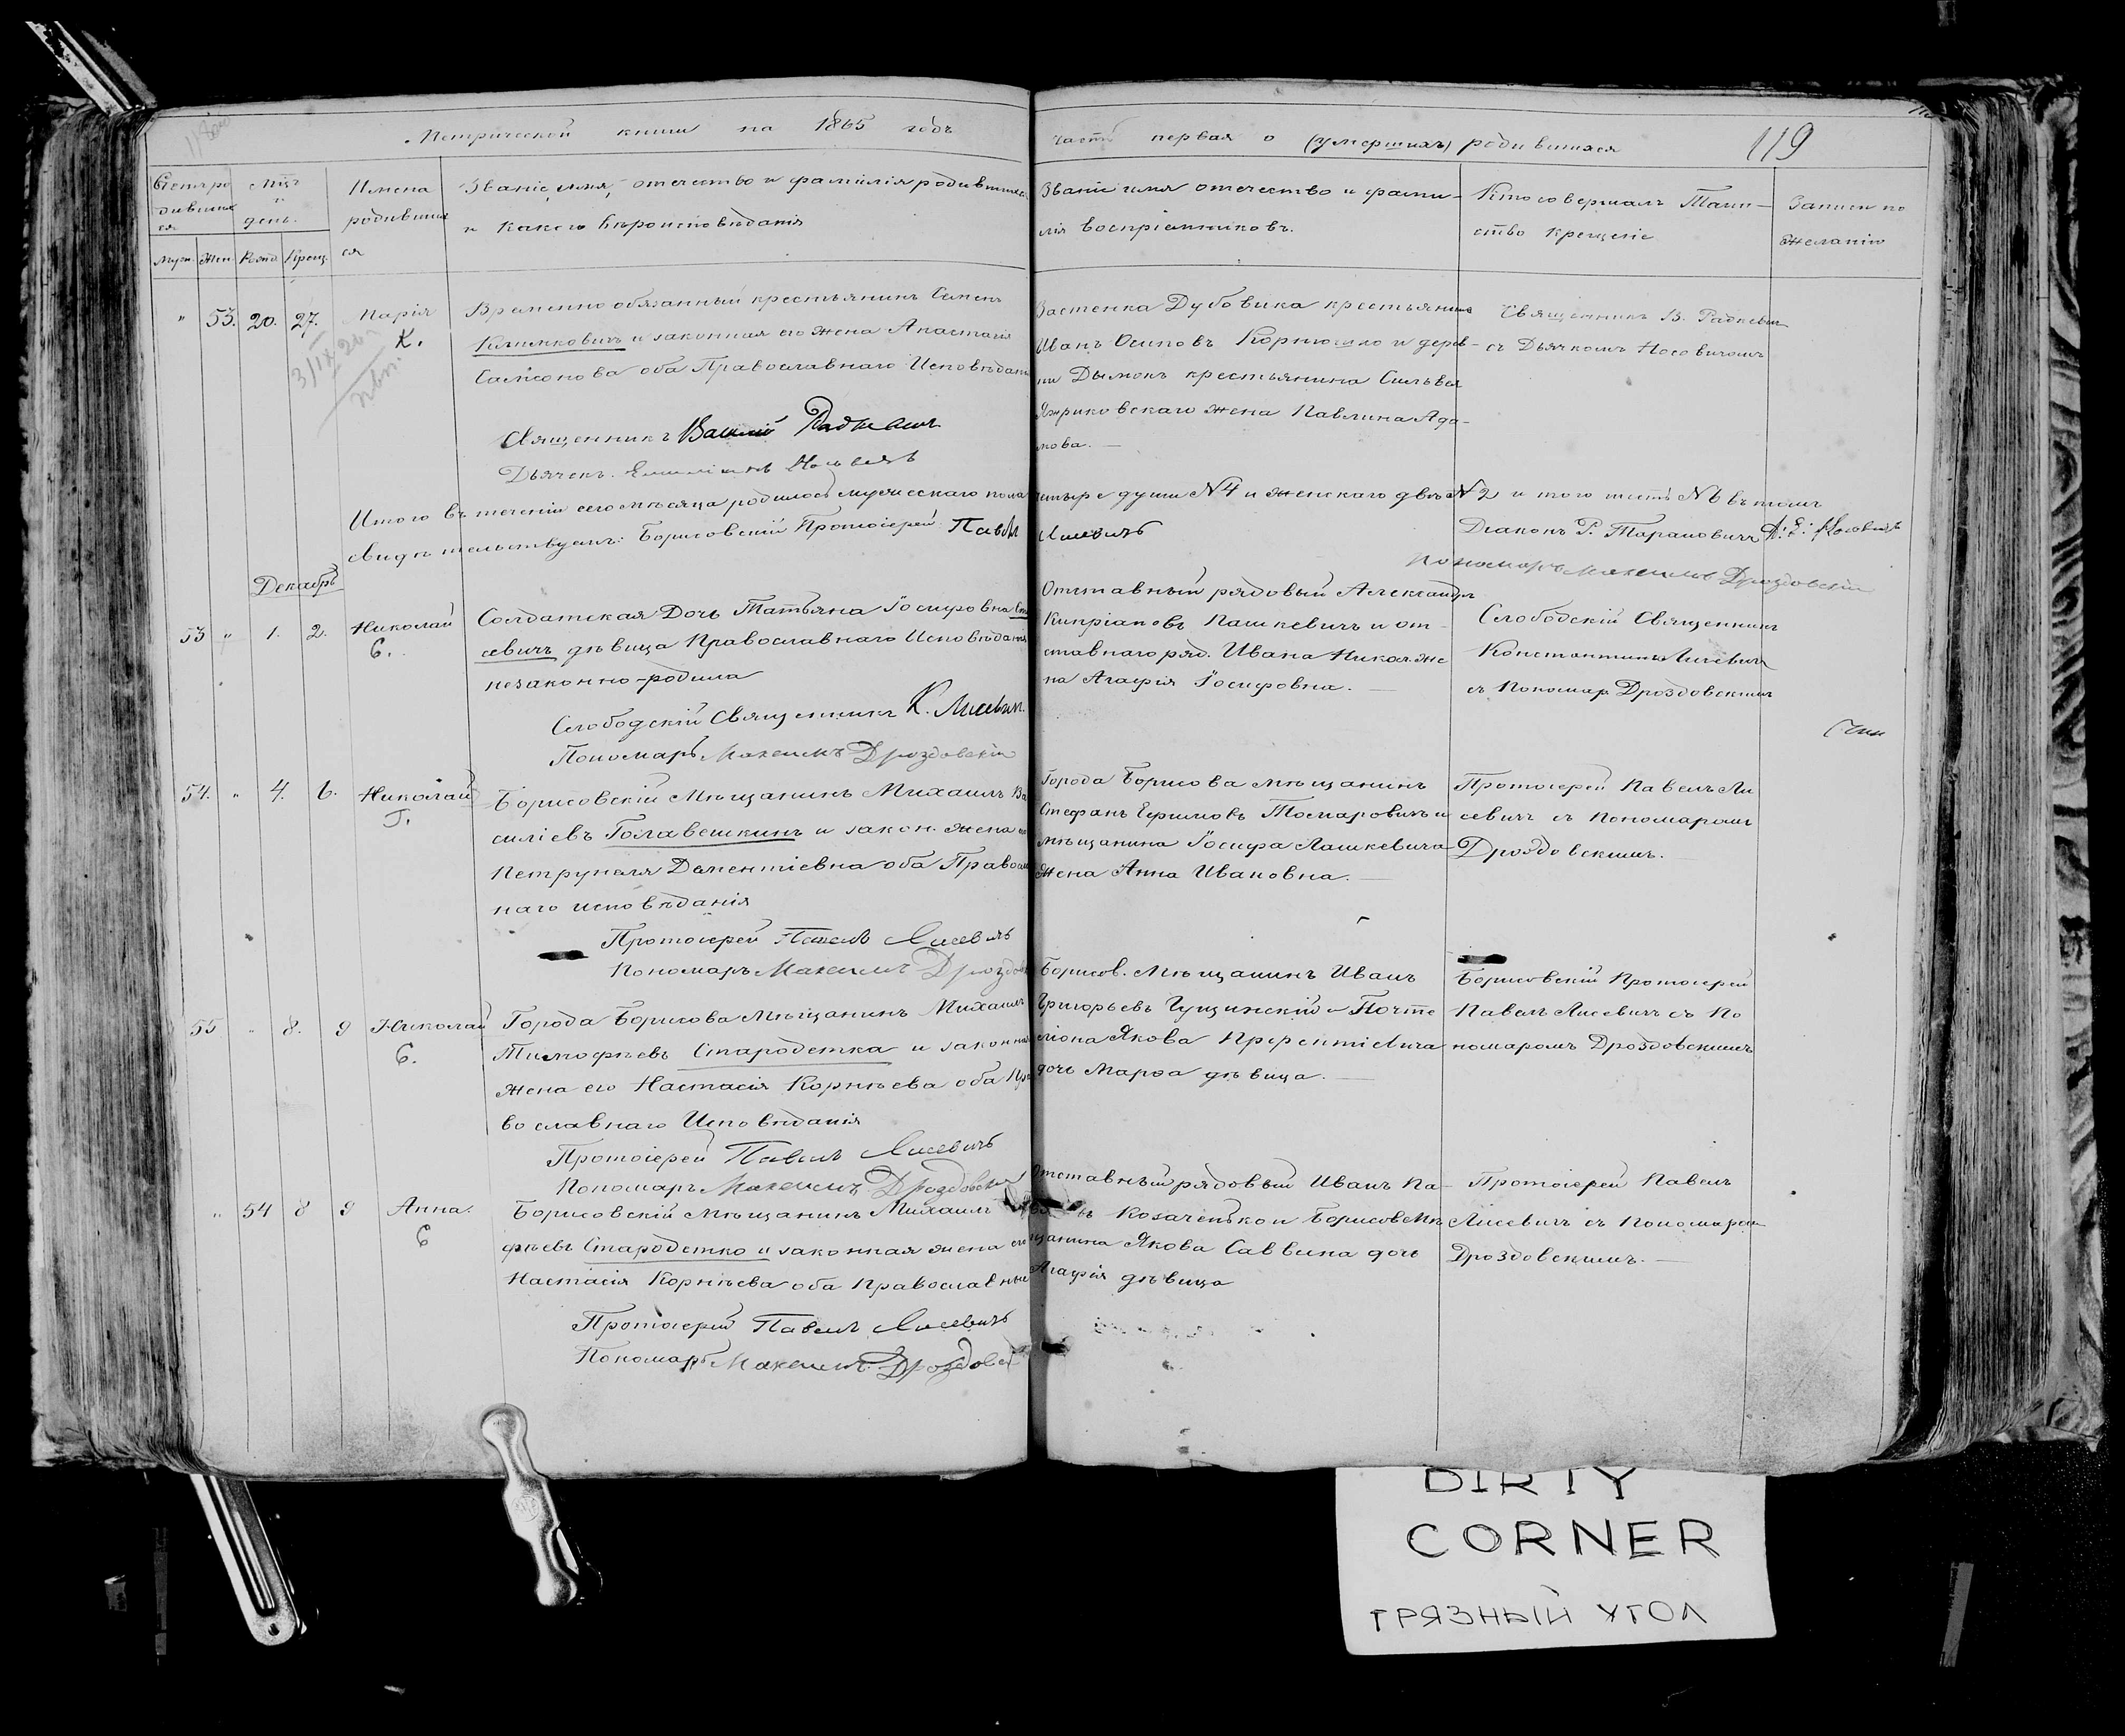 Метрической книги на 1865 годъ
часть первая о (умершихъ) родившихся
119
Счетъ родившихся
Мцъ и день.
Имена родившихся
Званіе, имя, отчество и фамилія родившихся
и какого вѣроисповѣданія
Званіе имя отчество и фами-
лія воспріемниковъ.
Кто совершалъ Таин-
ство крещеніе
Записи по
желанію
Муж. Жен. Рожд. Крещ.
" 53. 20. 27. Марія
К.
Временно обязанный крестьянинъ Семенъ
Климковичъ и законная его жена Анастасія
Самсонова оба Православнаго Исповѣдан
Священникъ Василій Радкевичъ
Дьячекъ
Застенка Дубовика крестьянинъ
Иванъ Осиповъ Корнюшко и дерев-
ни Дымокъ крестьянина Сильвея
жена Павлина Ада-
мова. —
Священникъ В. Радкевичъ
съ Дьячкомъ Носовичомъ
Итого въ теченіи сего мѣсяца родилось мужескаго пола
четыре души №4 и женскаго двѣ №2 и того шесть №6 въ томъ
свидѣтельствуемъ: Борисовскій Протоіерей Павелъ
Лисевичъ
Діаконъ Р. Тарановичъ
Пономарь Максимъ Дроздовскій
Декабрь
53 " 1. 2. Николай
С.
Солдатская Дочь Татьяна Іосифовна
севичъ дѣвица Православнаго Исповѣданія
незаконно-родила
Слободскій Священникъ К. Лисевичъ.
Пономарь Максимъ Дроздовскій
Отставный рядовый Александръ
Кипріановъ Пашкевичъ и от-
ставнаго ряд. Ивана Никол. же
на Агафія Іосифовна. —
Слободскій Священникъ
Константинъ Лисевичъ
съ Пономар Дроздовскимъ
54. " 4. 6. Николай
Г.
Борисовскій Мѣщанинъ Михаилъ Ва
силіевъГолавешкинъ и закон. жена
Петрунеля Дементіевна оба Правосл
наго исповѣданія
Протоіерей Павелъ Лисевичъ
Пономарь Максимъ Дроздов
Города Борисова мѣщанинъ
Стефанъ и
мѣщанина Іосифа Лашкевича
жена Анна Ивановна. —
Протоіерей Павелъ Ли
севичъ съ Пономаромъ
Дроздовскимъ.
55 " 8. 9 Николай
С.
Города Борисова Мѣщанинъ Михаилъ
Тимофѣевъ Стародетка и законная
жена его Настасія Корнѣева оба Пра
вославнаго Исповѣданія
Протоіерей Павелъ Лисевичъ
Пономарь Максимъ Дроздовскій
Борисов. Мѣщанинъ Иванъ
Григорьевъ и Почта
ліона Якова
дочь Марѳа дѣвица. —
Борисовскій Протоіерей
Павелъ Лисевичъ съ По
номаромъ Дроздовскимъ
" 54 8 9 Анна.
С
Борисовскій Мѣщанинъ Михаилъ
фѣевъ Стародетко и законная жена его
Настасія Корнѣева оба Православные
Протоіерей Павелъ Лисевичъ
Пономарь Максимъ Дроздовск
Отставный рядовый Иванъ Па-
Козаченько и Борисов. Мѣ
щанина Якова Саввина дочь
Агафія дѣвица
Протоіерей Павелъ
Лисевичъ съ Пономаром
Дроздовскимъ. —
DIRTY
CORNER
ГРЯЗНЫЙ УГОЛ